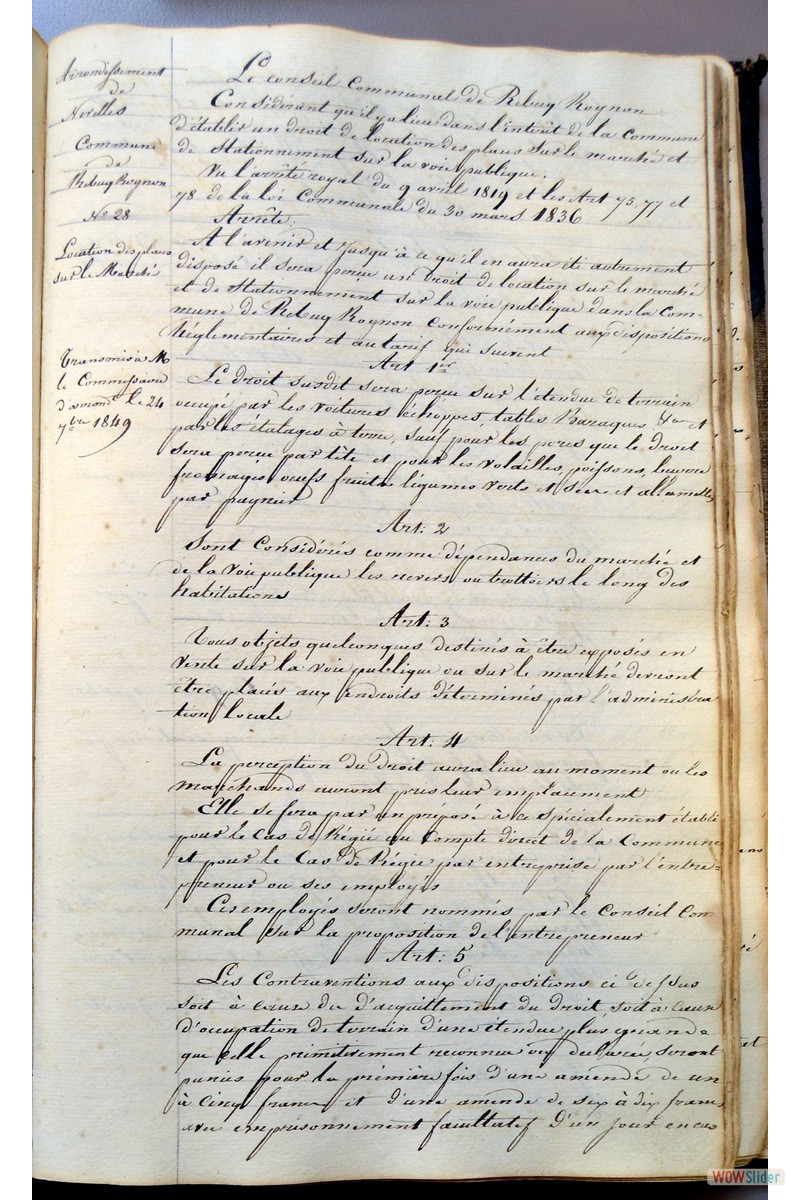 Arrondissement
de
Nivelles
Commune
de
Rebecq Rognon
No 28
Location des places
sur le Marché
Transmis à M
le Commissaire
d'arrondt le 24
7bre 1849
Le conseil Communal de Rebecq Rognon
Considérant qu'il y a lieu dans l'intérêt de la Commune
d'établir un droit de location des places sur le marché et
de Stationnement sur la voie publique.
Vu l'arrêté royal du 9 avril 1819 et les Art 75, 77 et
78 de la loi Communale du 30 mars 1836
Arrête:
A l'avenir et jusqu'à ce qu'il en aura été autrement
disposé il sera perçu un droit de location sur le marché
et de Stationnement sur la voie publique dans la Com-
mune de Rebecq Rognon Conformément aux dispositions
Réglementaires et au tarif qui suivent
Art 1er
Le droit susdit sera perçu sur l'étendue de terrain
occupé par les voitures échoppes, tables Baraques &a et
par les étalages à terre, sauf pour les porcs que le droit
sera perçu par tête et pour les volailles, poissons, beurre
fromages oeufs fruits légumes verts et secs et allumettes
par pagnier
Art: 2
Sont Considérés comme dépendances du marché et
de la voie publique les revers ou trottoirs le long des
habitations
Art: 3
Tous objets quelconques destinés à être exposés en
vente sur la voie publique ou sur le marché devront
être placés aux endroits déterminés par l'administra
tion locale
Art: 4
La perception du droit aura lieu au moment où les
marchands auront pris leur emplacement
Elle se fera par un préposé à ce spécialement établi
pour le Cas de Régie au Compte direct de la Commune
et pour le Cas de Régie par entreprise par l'entre=
preneur ou ses employés
Ces employés seront nommés par le Conseil Com
munal sur la proposition de l'entrepreneur
Art: 5
Les Contraventions aux dispositions ci dessus
soit à cause du d'acquittement du droit, soit à cause
d'occupation de terrain d'une étendue plus grande
que celle primitivement reconnue ou déclarée, seront
punies pour la première fois d'une amende de un
à Cinq francs et d'une amende de six à dix francs
avec emprisonnement facultatif d'un jour en cas
WOWSlider